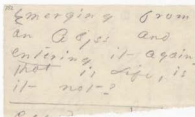 Emerging from
an Abyss and
entering it again
that is Life, is
it not?